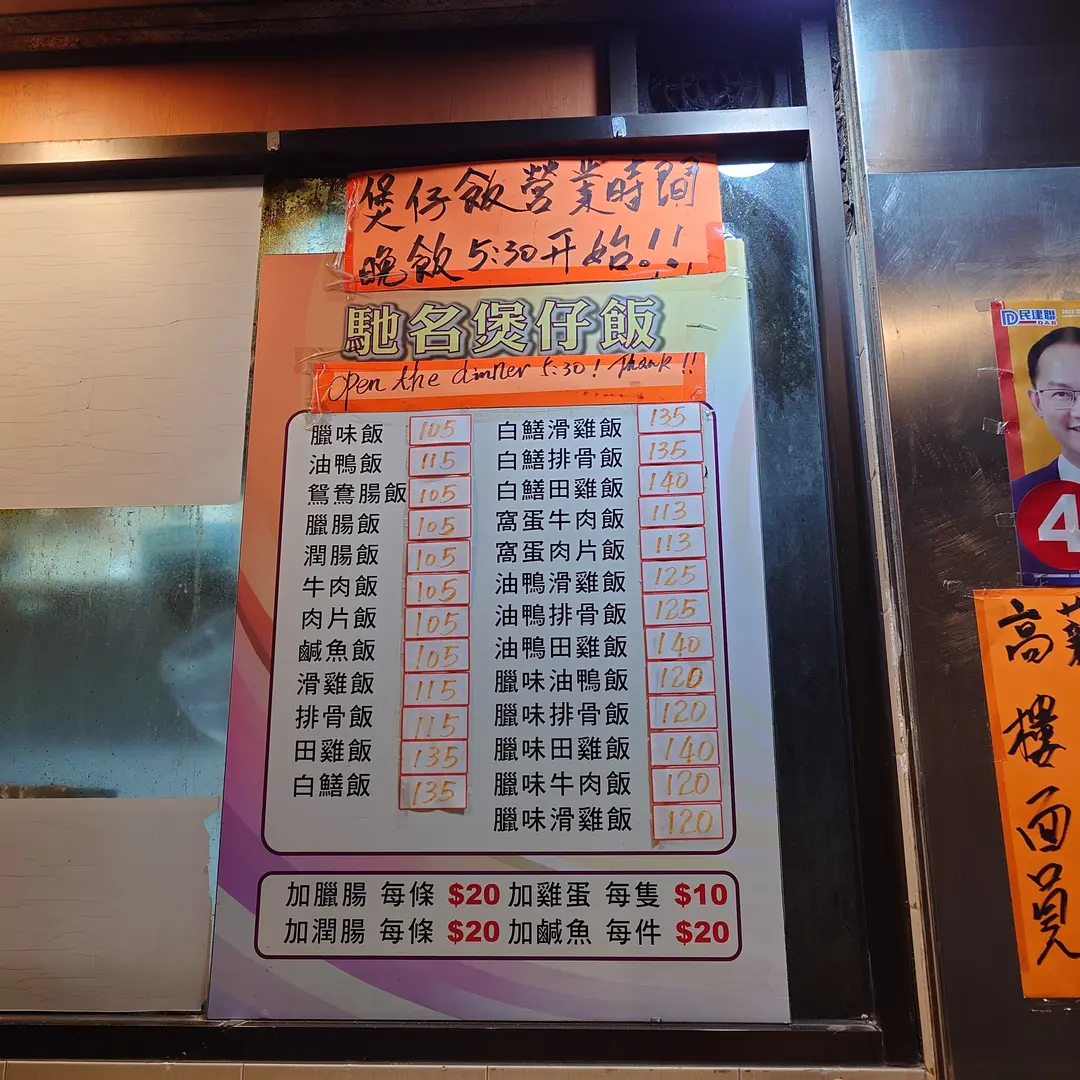 煲仔飯營業時間
晚飯 5:30 开始!!
馳名煲仔飯
Open the dinner 5:30! Thank!!
臘味飯 105
油鴨飯 115
鴛鴦腸飯 105
臘腸飯 105
潤腸飯 105
牛肉飯 105
肉片飯 105
鹹魚飯 105
滑雞飯 115
排骨飯 115
田雞飯 135
白鱔飯 135
白鱔滑雞飯 135
白鱔排骨飯 135
白鱔田雞飯 140
窩蛋牛肉飯 113
窩蛋肉片飯 113
油鴨滑雞飯 125
油鴨排骨飯 125
油鴨田雞飯 140
臘味油鴨飯 120
臘味排骨飯 120
臘味田雞飯 140
臘味牛肉飯 120
臘味滑雞飯 120
加臘腸 每條 $20 加雞蛋 每隻 $10
加潤腸 每條 $20 加鹹魚 每件 $20
民建聯
DAB
4
高
樓
面
員